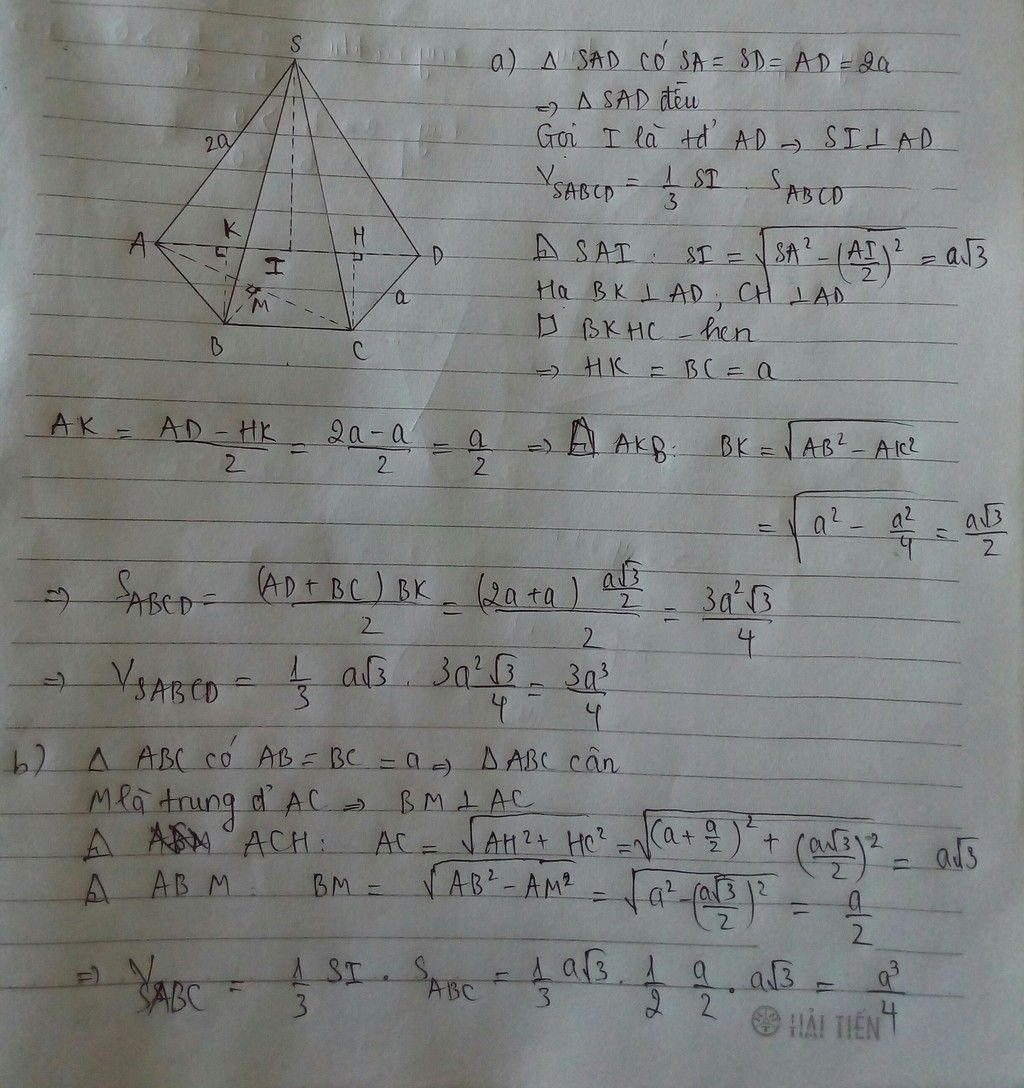 S
2a
A
K
H
D
I
M
a
B
C
a) Δ SAD có SA = SD = AD = 2a
=> Δ SAD đều
Gọi I là tđ' AD → SI ⊥ AD
V_SABCD = 1/3 SI . S_ABCD
SAI : SI = √(SA² - (AI/2)²) = a√3
Hạ BK ⊥ AD ; CH ⊥ AD
□ BKHC - hcn
=> HK = BC = a
AK = (AD - HK)/2 = (2a - a)/2 = a/2 => AKB: BK = √(AB² - AK²)
= √(a² - a²/4) = a√3/2
=> S_ABCD = (AD + BC) BK/2 = (2a + a) a√3/2 /2 = 3a²√3/4
=> V_SABCD = 1/3 a√3 . 3a²√3/4 = 3a³/4
b) Δ ABC có AB = BC = a => Δ ABC cân
M là trung đ' AC => BM ⊥ AC
ACH : AC = √(AH² + HC²) = √((a + a/2)² + (a√3/2)²) = a√3
ABM : BM = √(AB² - AM²) = √(a² - (a√3/2)²) = a/2
=> V_SABC = 1/3 SI . S_ABC = 1/3 a√3 . 1/2 a/2 . a√3 = a³/4
HẢI TIẾN